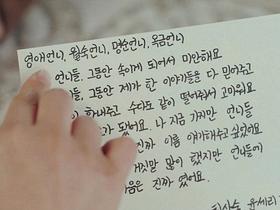 영애언니, 월숙언니, 명순언니, 옥금언니
언니들, 그동안 속이게 되어서 미안해요
들, 그동안 제가 한 이야기들을 다 믿어주고
해주고 수다도 같이 떨어줘서 고마워요
됐어요. 나 지금 가지만 언니들
진짜 이름 얘기해주고 싶었어요
거짓말 많이 했지만 언니들에
음은 진짜 였어요.
윤세리